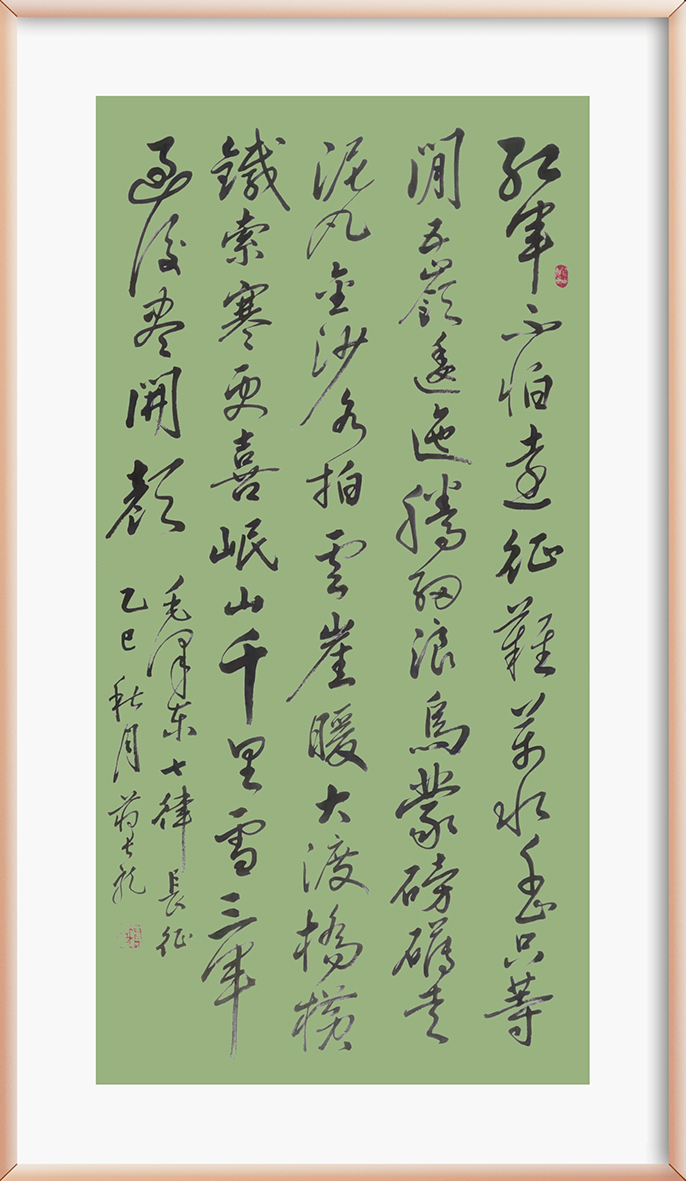 紅軍不怕遠征難萬水千山只等
閒五嶺逶迤騰細浪烏蒙磅礴走
泥丸金沙水拍雲崖暖大渡橋橫
鐵索寒更喜岷山千里雪三軍
過後盡開顏
毛澤东七律長征
乙巳秋月